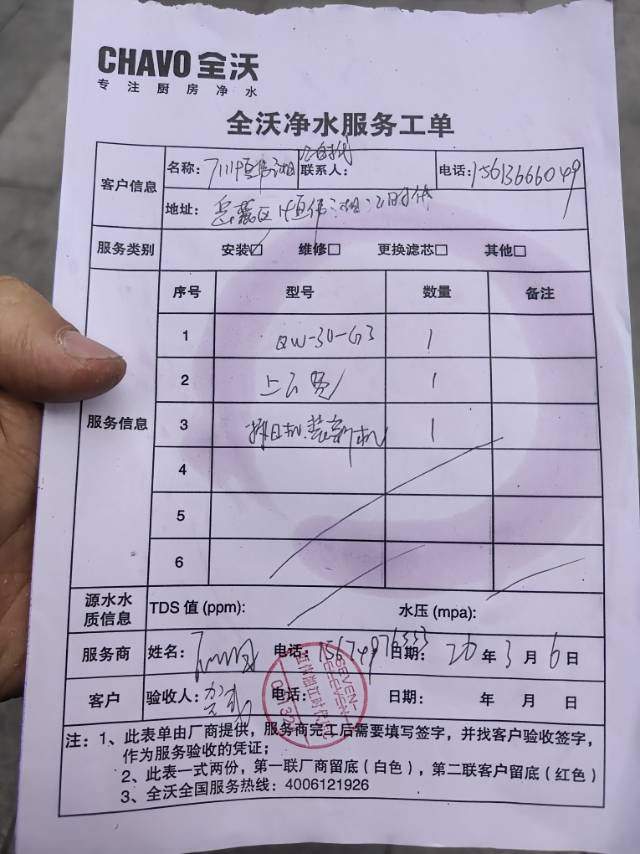 CHAVO 全沃
专注厨房净水
全沃净水服务工单
客户信息
名称： 711恒伟湘江时代 联系人： 电话：15613666049
地址： 岳麓区恒伟湘江时代
服务类别 安装☑ 维修□ 更换滤芯□ 其他□
服务信息
序号 型号 数量 备注
1 QW-30-G3 1
2 1
3 拆旧机.装新机 1
4
5
6
源水水质信息 TDS 值 (ppm): 水压 (mpa):
服务商 姓名： 电话：15674976333 日期： 26 年 3 月 6 日
客户 验收人： 电话： 日期： 年 月 日
SEVEN-ELEVEN
注：1、此表单由厂商提供，服务商完工后需要填写签字，并找客户验收签字，
作为服务验收的凭证；
2、此表一式两份，第一联厂商留底（白色），第二联客户留底（红色）
3、全沃全国服务热线：4006121926